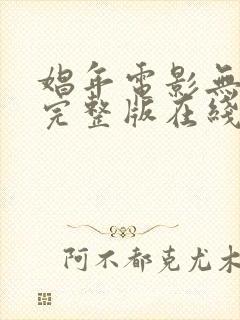 娼年电影無
完整版在綫
阿不都克尤木